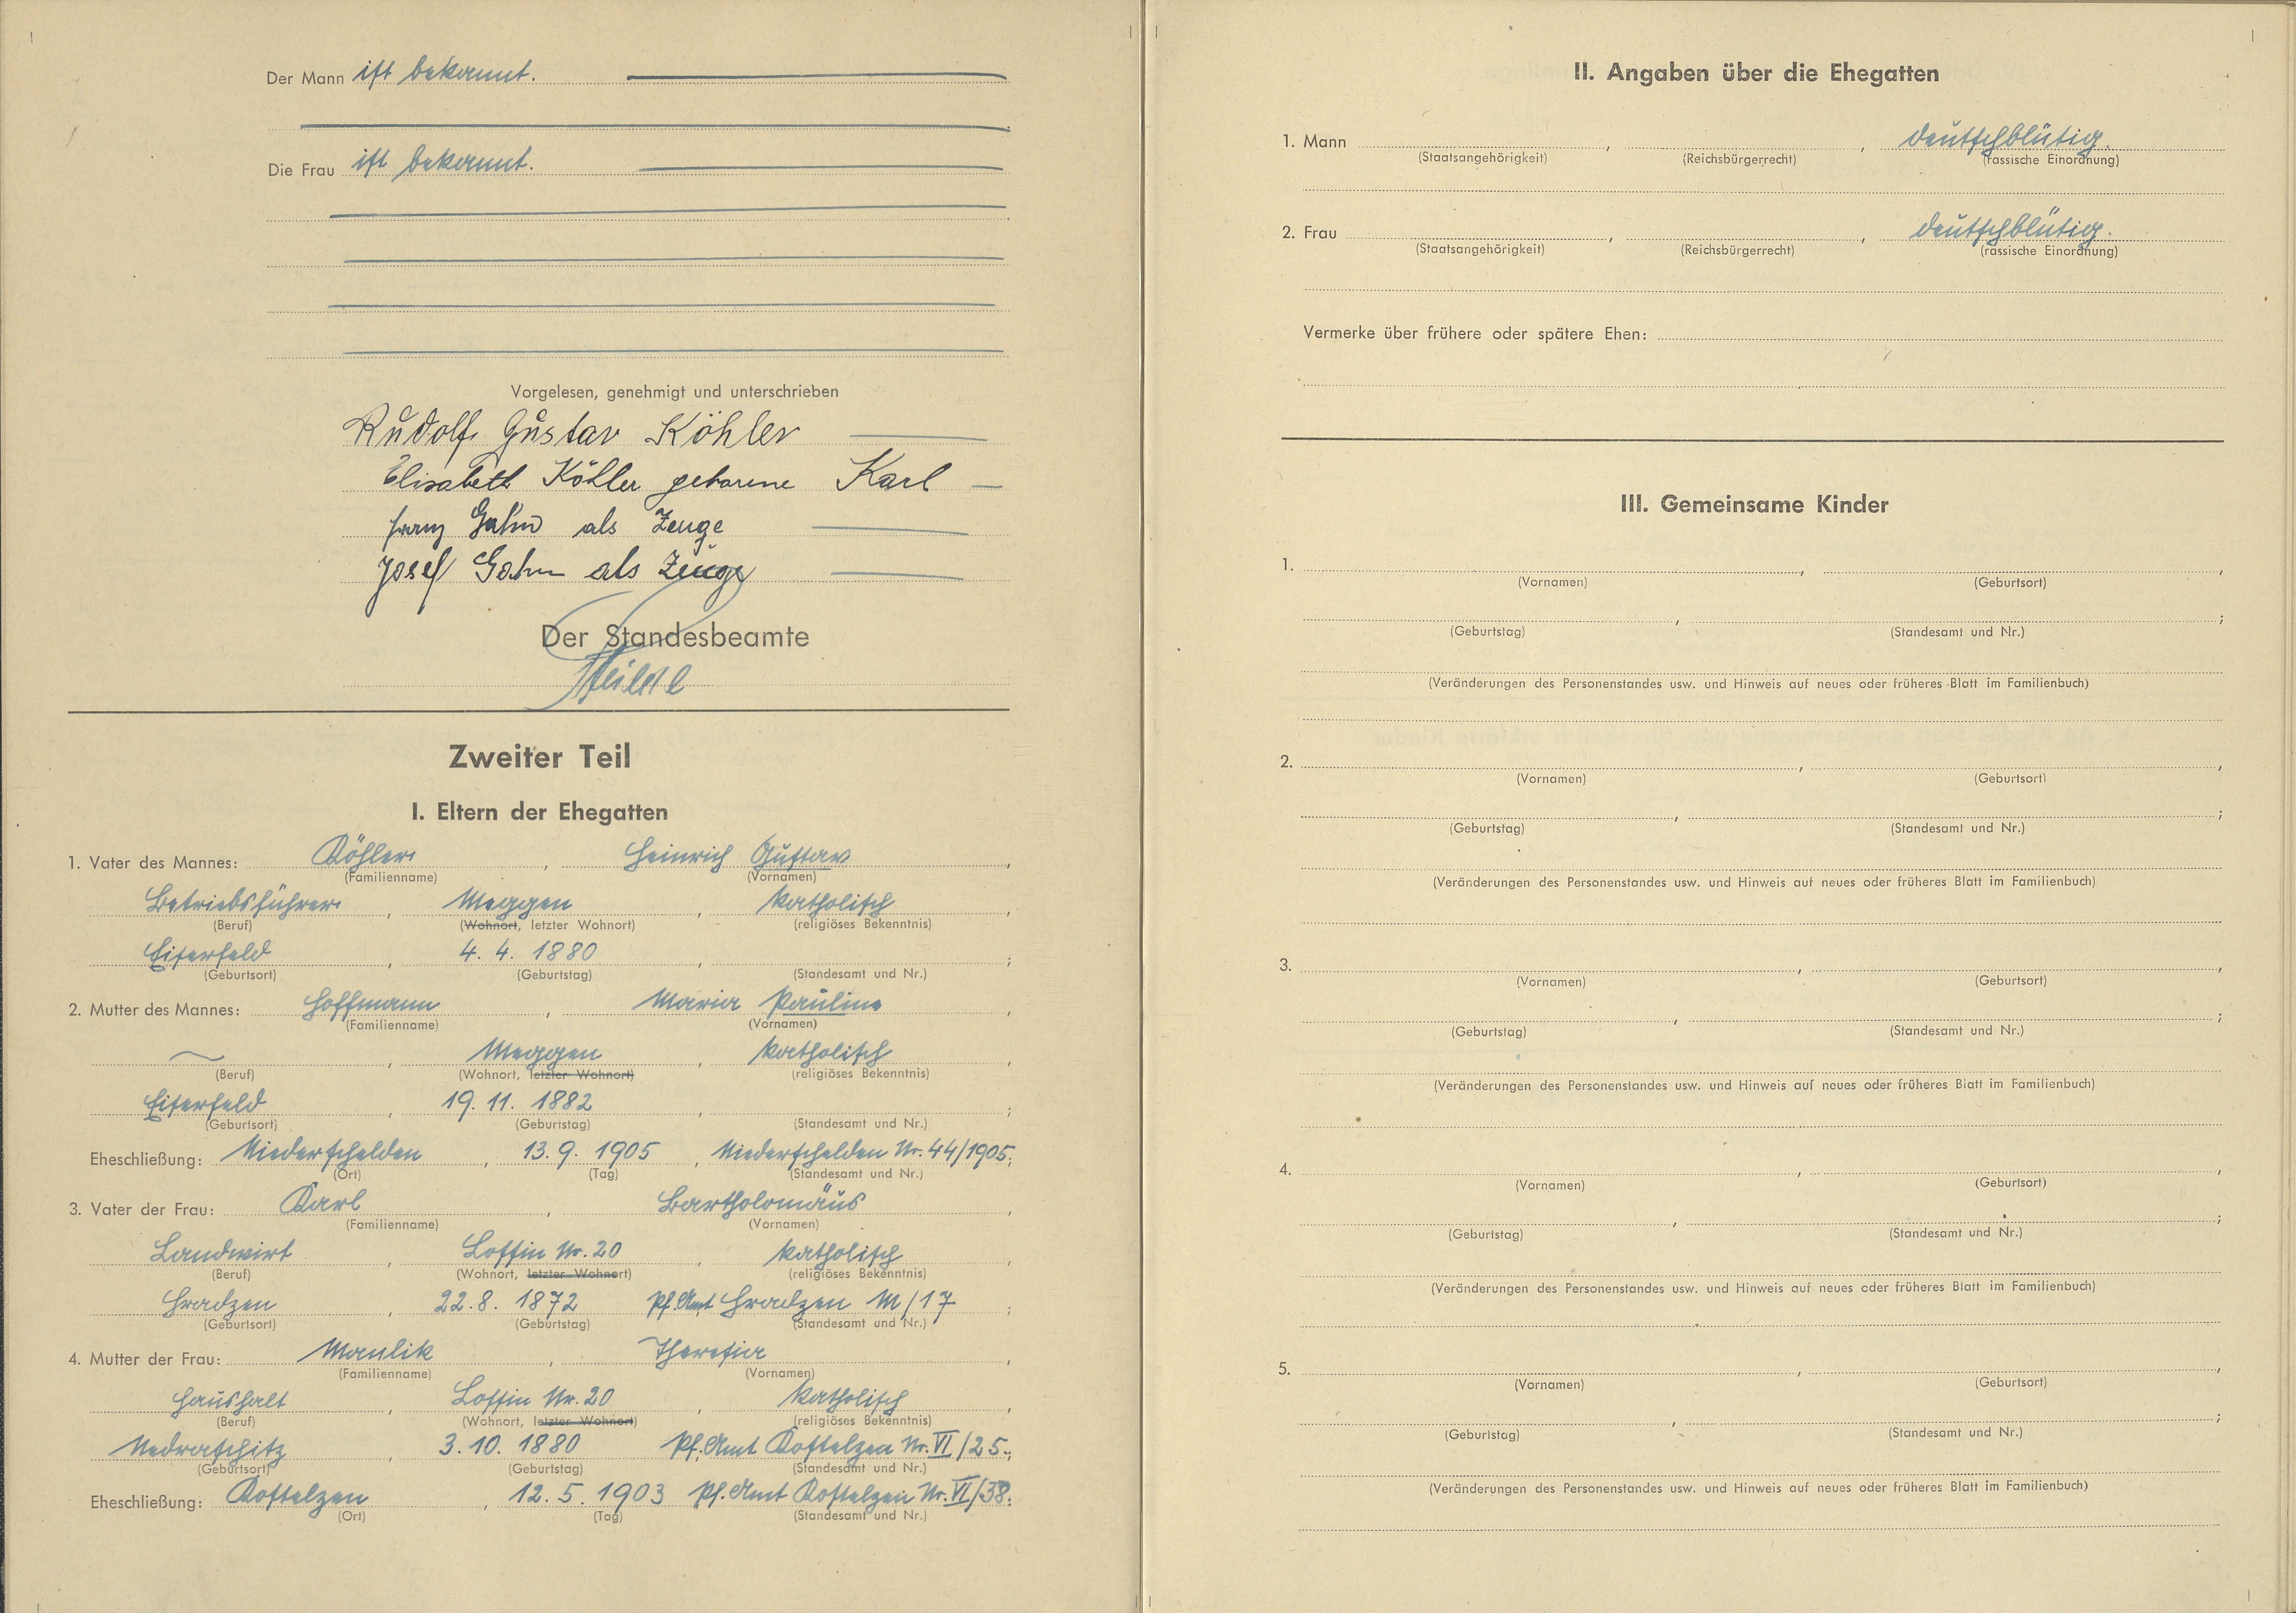 Der Mann ist bekannt.
Die Frau ist bekannt.
Vorgelesen, genehmigt und unterschrieben
Rudolf Gustav Köhler
Elisabeth Köhler geborene Karl
Franz Gahm als Zeuge
Josef Gahm als Zeuge
Der Standesbeamte
Zweiter Teil
I. Eltern der Ehegatten
1. Vater des Mannes: Köhler, Heinrich Gustav,
(Familienname) (Vornamen)
Betriebsführer, Meggen, katholisch,
(Beruf) (Wohnort, letzter Wohnort) (religiöses Bekenntnis)
Eiserfeld, 4. 4. 1880, ;
(Geburtsort) (Geburtstag) (Standesamt und Nr.)
2. Mutter des Mannes: Hoffmann, Maria Pauline,
(Familienname) (Vornamen)
, Meggen, katholisch,
(Beruf) (Wohnort, letzter Wohnort) (religiöses Bekenntnis)
Eiserfeld, 19. 11. 1882, ;
(Geburtsort) (Geburtstag) (Standesamt und Nr.)
Eheschließung: Niederschelden, 13. 9. 1905, Niederschelden Nr. 44/1905;
(Ort) (Tag) (Standesamt und Nr.)
3. Vater der Frau: Karl, Bartholomäus,
(Familienname) (Vornamen)
Landwirt, Lossin Nr. 20, katholisch,
(Beruf) (Wohnort, letzter Wohnort) (religiöses Bekenntnis)
Hradzen, 22. 8. 1872 Pf. Amt Hradzen M/17;
(Geburtsort) (Geburtstag) (Standesamt und Nr.)
4. Mutter der Frau: Maulik, Theresia,
(Familienname) (Vornamen)
Haushalt, Lossin Nr. 20, katholisch,
(Beruf) (Wohnort, letzter Wohnort) (religiöses Bekenntnis)
Nedraschitz, 3. 10. 1880 Pf. Amt Kostelzen Nr. VI/25.;
(Geburtsort) (Geburtstag) (Standesamt und Nr.)
Eheschließung: Kostelzen, 12. 5. 1903 Pf. Amt Kostelzen Nr. VI/38.
(Ort) (Tag) (Standesamt und Nr.)
II. Angaben über die Ehegatten
1. Mann , , deutschblütig.
(Staatsangehörigkeit) (Reichsbürgerrecht) (rassische Einordnung)
2. Frau , , deutschblütig.
(Staatsangehörigkeit) (Reichsbürgerrecht) (rassische Einordnung)
Vermerke über frühere oder spätere Ehen:
III. Gemeinsame Kinder
1. , ,
(Vornamen) (Geburtsort)
, ;
(Geburtstag) (Standesamt und Nr.)
(Veränderungen des Personenstandes usw. und Hinweis auf neues oder früheres Blatt im Familienbuch)
2. , ,
(Vornamen) (Geburtsort)
, ;
(Geburtstag) (Standesamt und Nr.)
(Veränderungen des Personenstandes usw. und Hinweis auf neues oder früheres Blatt im Familienbuch)
3. , ,
(Vornamen) (Geburtsort)
, ;
(Geburtstag) (Standesamt und Nr.)
(Veränderungen des Personenstandes usw. und Hinweis auf neues oder früheres Blatt im Familienbuch)
4. , ,
(Vornamen) (Geburtsort)
, ;
(Geburtstag) (Standesamt und Nr.)
(Veränderungen des Personenstandes usw. und Hinweis auf neues oder früheres Blatt im Familienbuch)
5. , ,
(Vornamen) (Geburtsort)
, ;
(Geburtstag) (Standesamt und Nr.)
(Veränderungen des Personenstandes usw. und Hinweis auf neues oder früheres Blatt im Familienbuch)